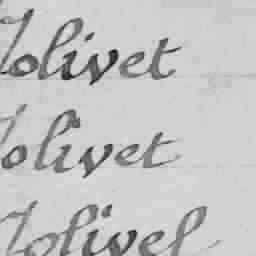 Jolivet
Jolivet
Jolivel